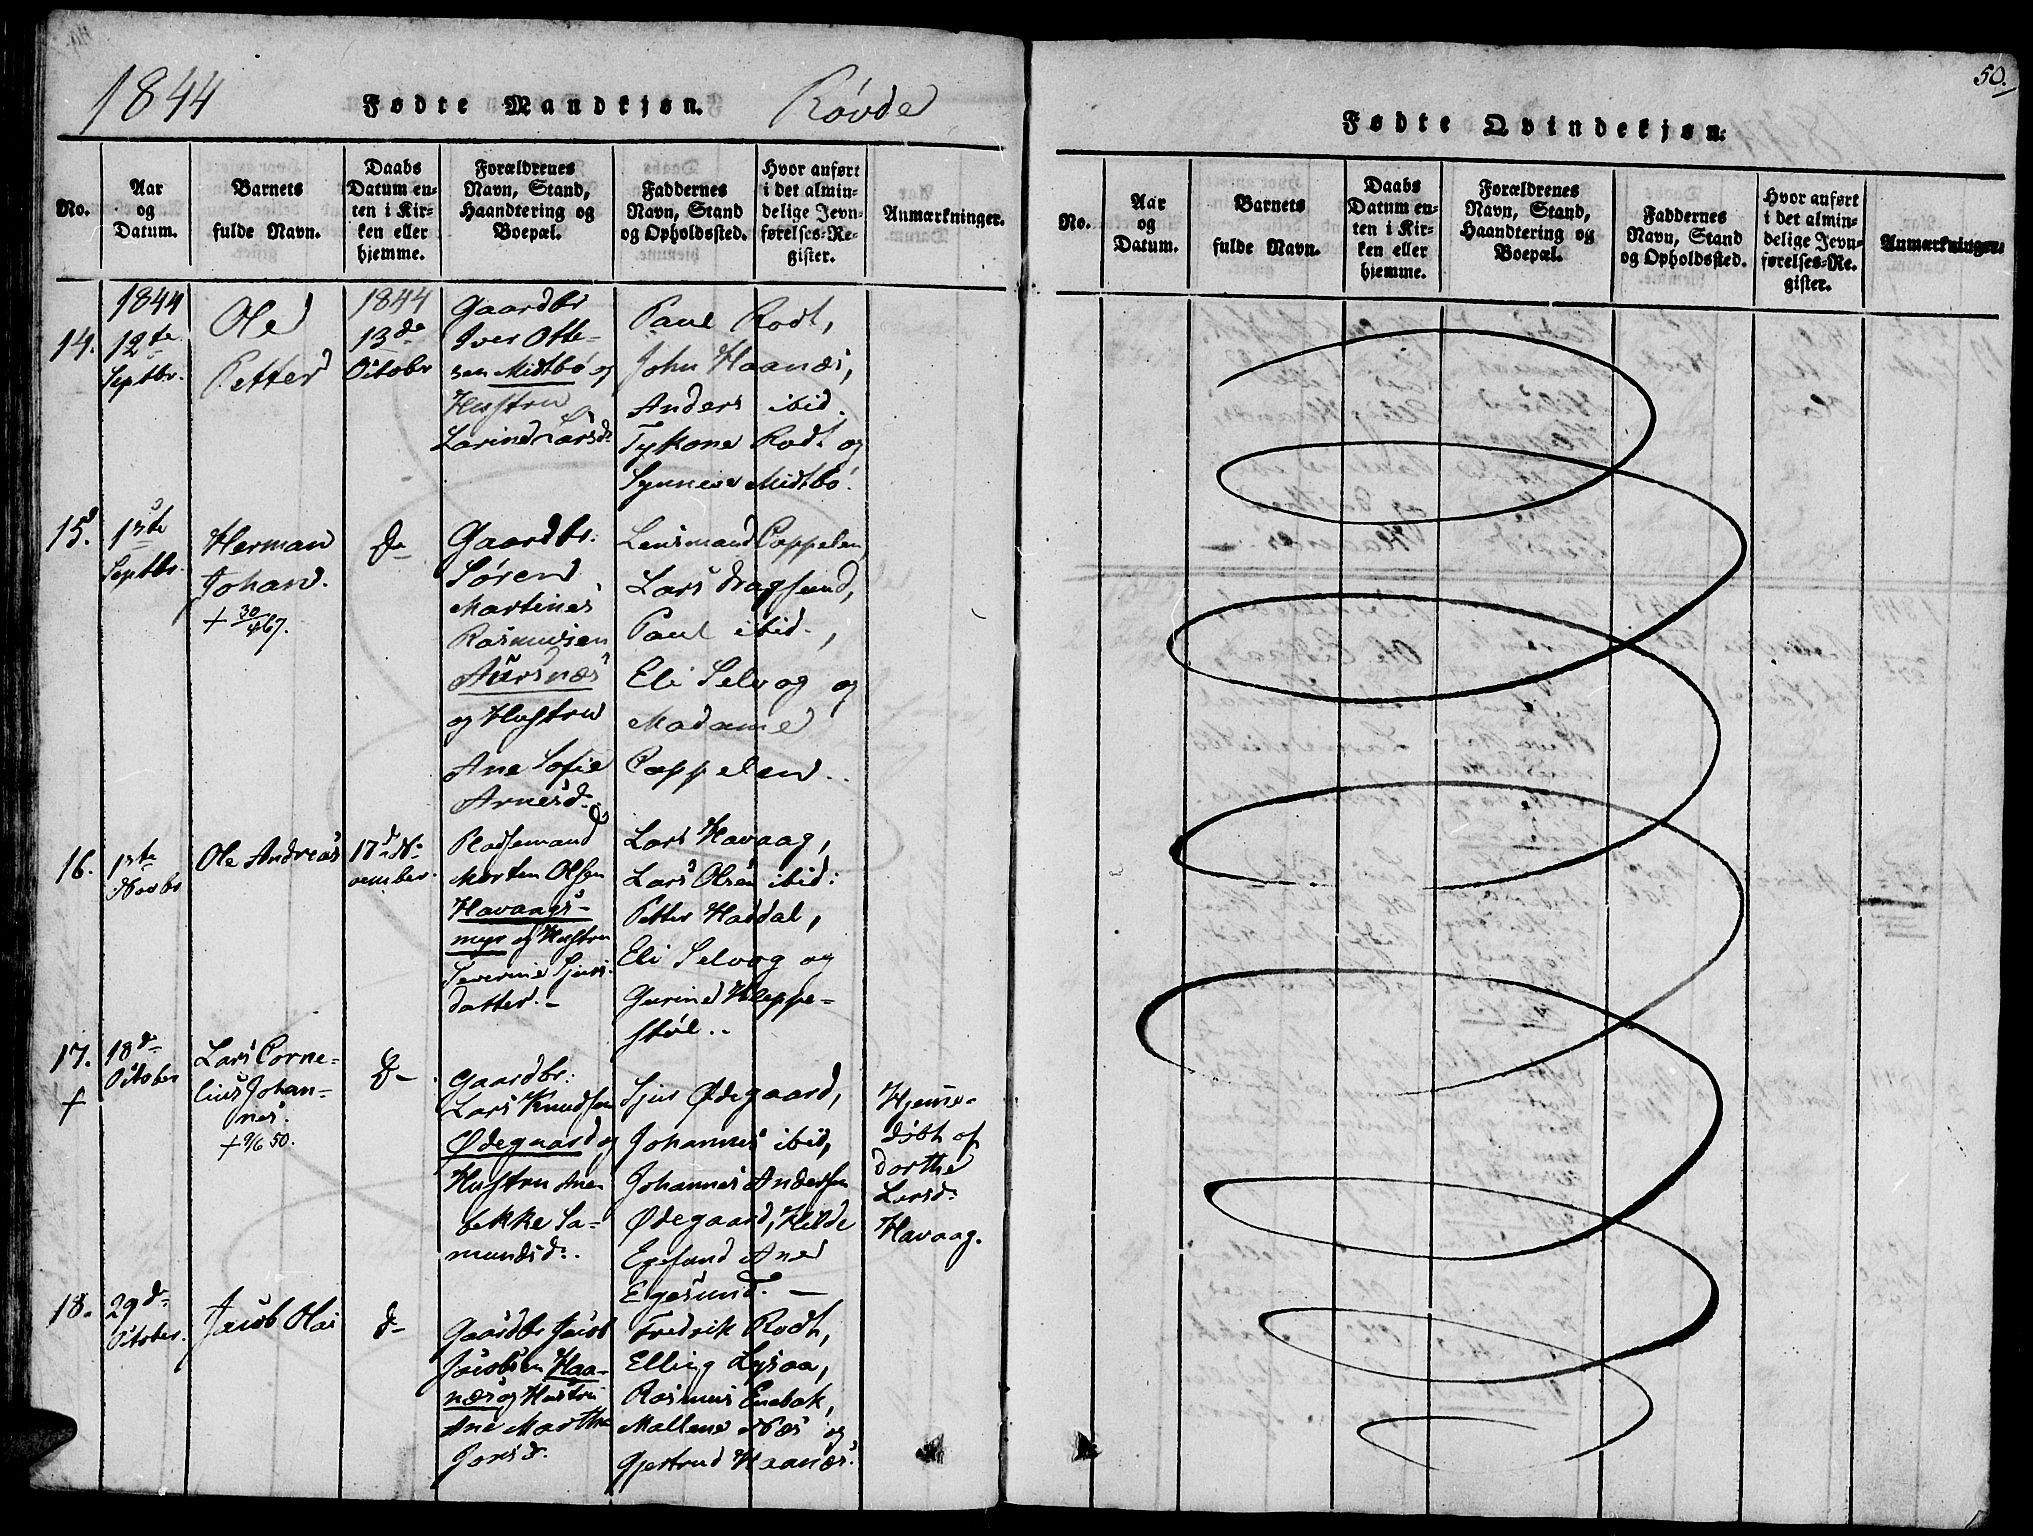 50.
1844 Fødte Mandkjøn. Røvde
No.
Aar og Datum.
Barnets fulde Navn.
Daabs Datum enten i Kirken eller hjemme.
Forældrenes Navn, Stand, Haandtering og Boepæl.
Faddernes Navn, Stand og Opholdssted.
Hvor anført i det almindelige Jevnførelses-Register.
Anmærkninger.
14.
1844
12te
Septbr.
Ole
Petter
1844
13de
Octobr
Gaardbr
Iver Otte-
sen Midtbø og
Hustru
Larine Larsd.
Paul Rodt,
John Haanæs,
Anders ibid.
Tykone Rodt og
Synneve Midtbø.
15.
13te
Septbr.
Herman
Johan.
+ 30/4 67.
do
Gaardbr.
Søren
Martines
Rasmusen
Aursnæs
og Hustru
Ane Sofie
Arnesd.
Lensmand Cappelen
Lars Dragsund,
Paul ibid.,
Eli Selvog og
Madame
Cappelen..
16.
13te
Novbr
Ole Andreas
17d No-
vember.
Pladsemand
Morten Olsen
Havaags-
myr og Hustru
Severine Sjurs-
datter.-
Lars Havaag,
Lars Olsen ibid:
Petter Haddal,
Eli Selvog og
Gurine Kleppe-
støl..
17.
+
18de
October
Lars Corne-
lius Johan-
nes.
+ 9/6 50.
do
Gaardbr:
Lars Knudsen
Ødegaard og
Hustru Ane
bekke Sa-
mundsd..
Sjur Ødegaard,
Johannes ibid,
Johannes Andersen
Ødegaard, Kilde
Egesund Ane
Egesund. -
Hjemme-
døbt af
Dorthe
Larsd.
Havaag.
18.
29de
October.
Jacob Olai
do
Gaardbr Jacob
Jacobsen Haa-
næs og Hustru
Ane Marthe
Jonsd.
Fredrik Rodt,
Elling Lysaa,
Rasmus Enebak,
Mallene Næs og
Gjertrud Haanæs.
Fødte Qvindekjøn.
No.
Aar og Datum.
Barnets fulde Navn.
Daabs Datum enten i Kirken eller hjemme.
Forældrenes Navn, Stand, Haandtering og Boepæl.
Faddernes Navn, Stand og Opholdssted.
Hvor anført i det almindelige Jevnførelses-Register.
Anmærkninger.